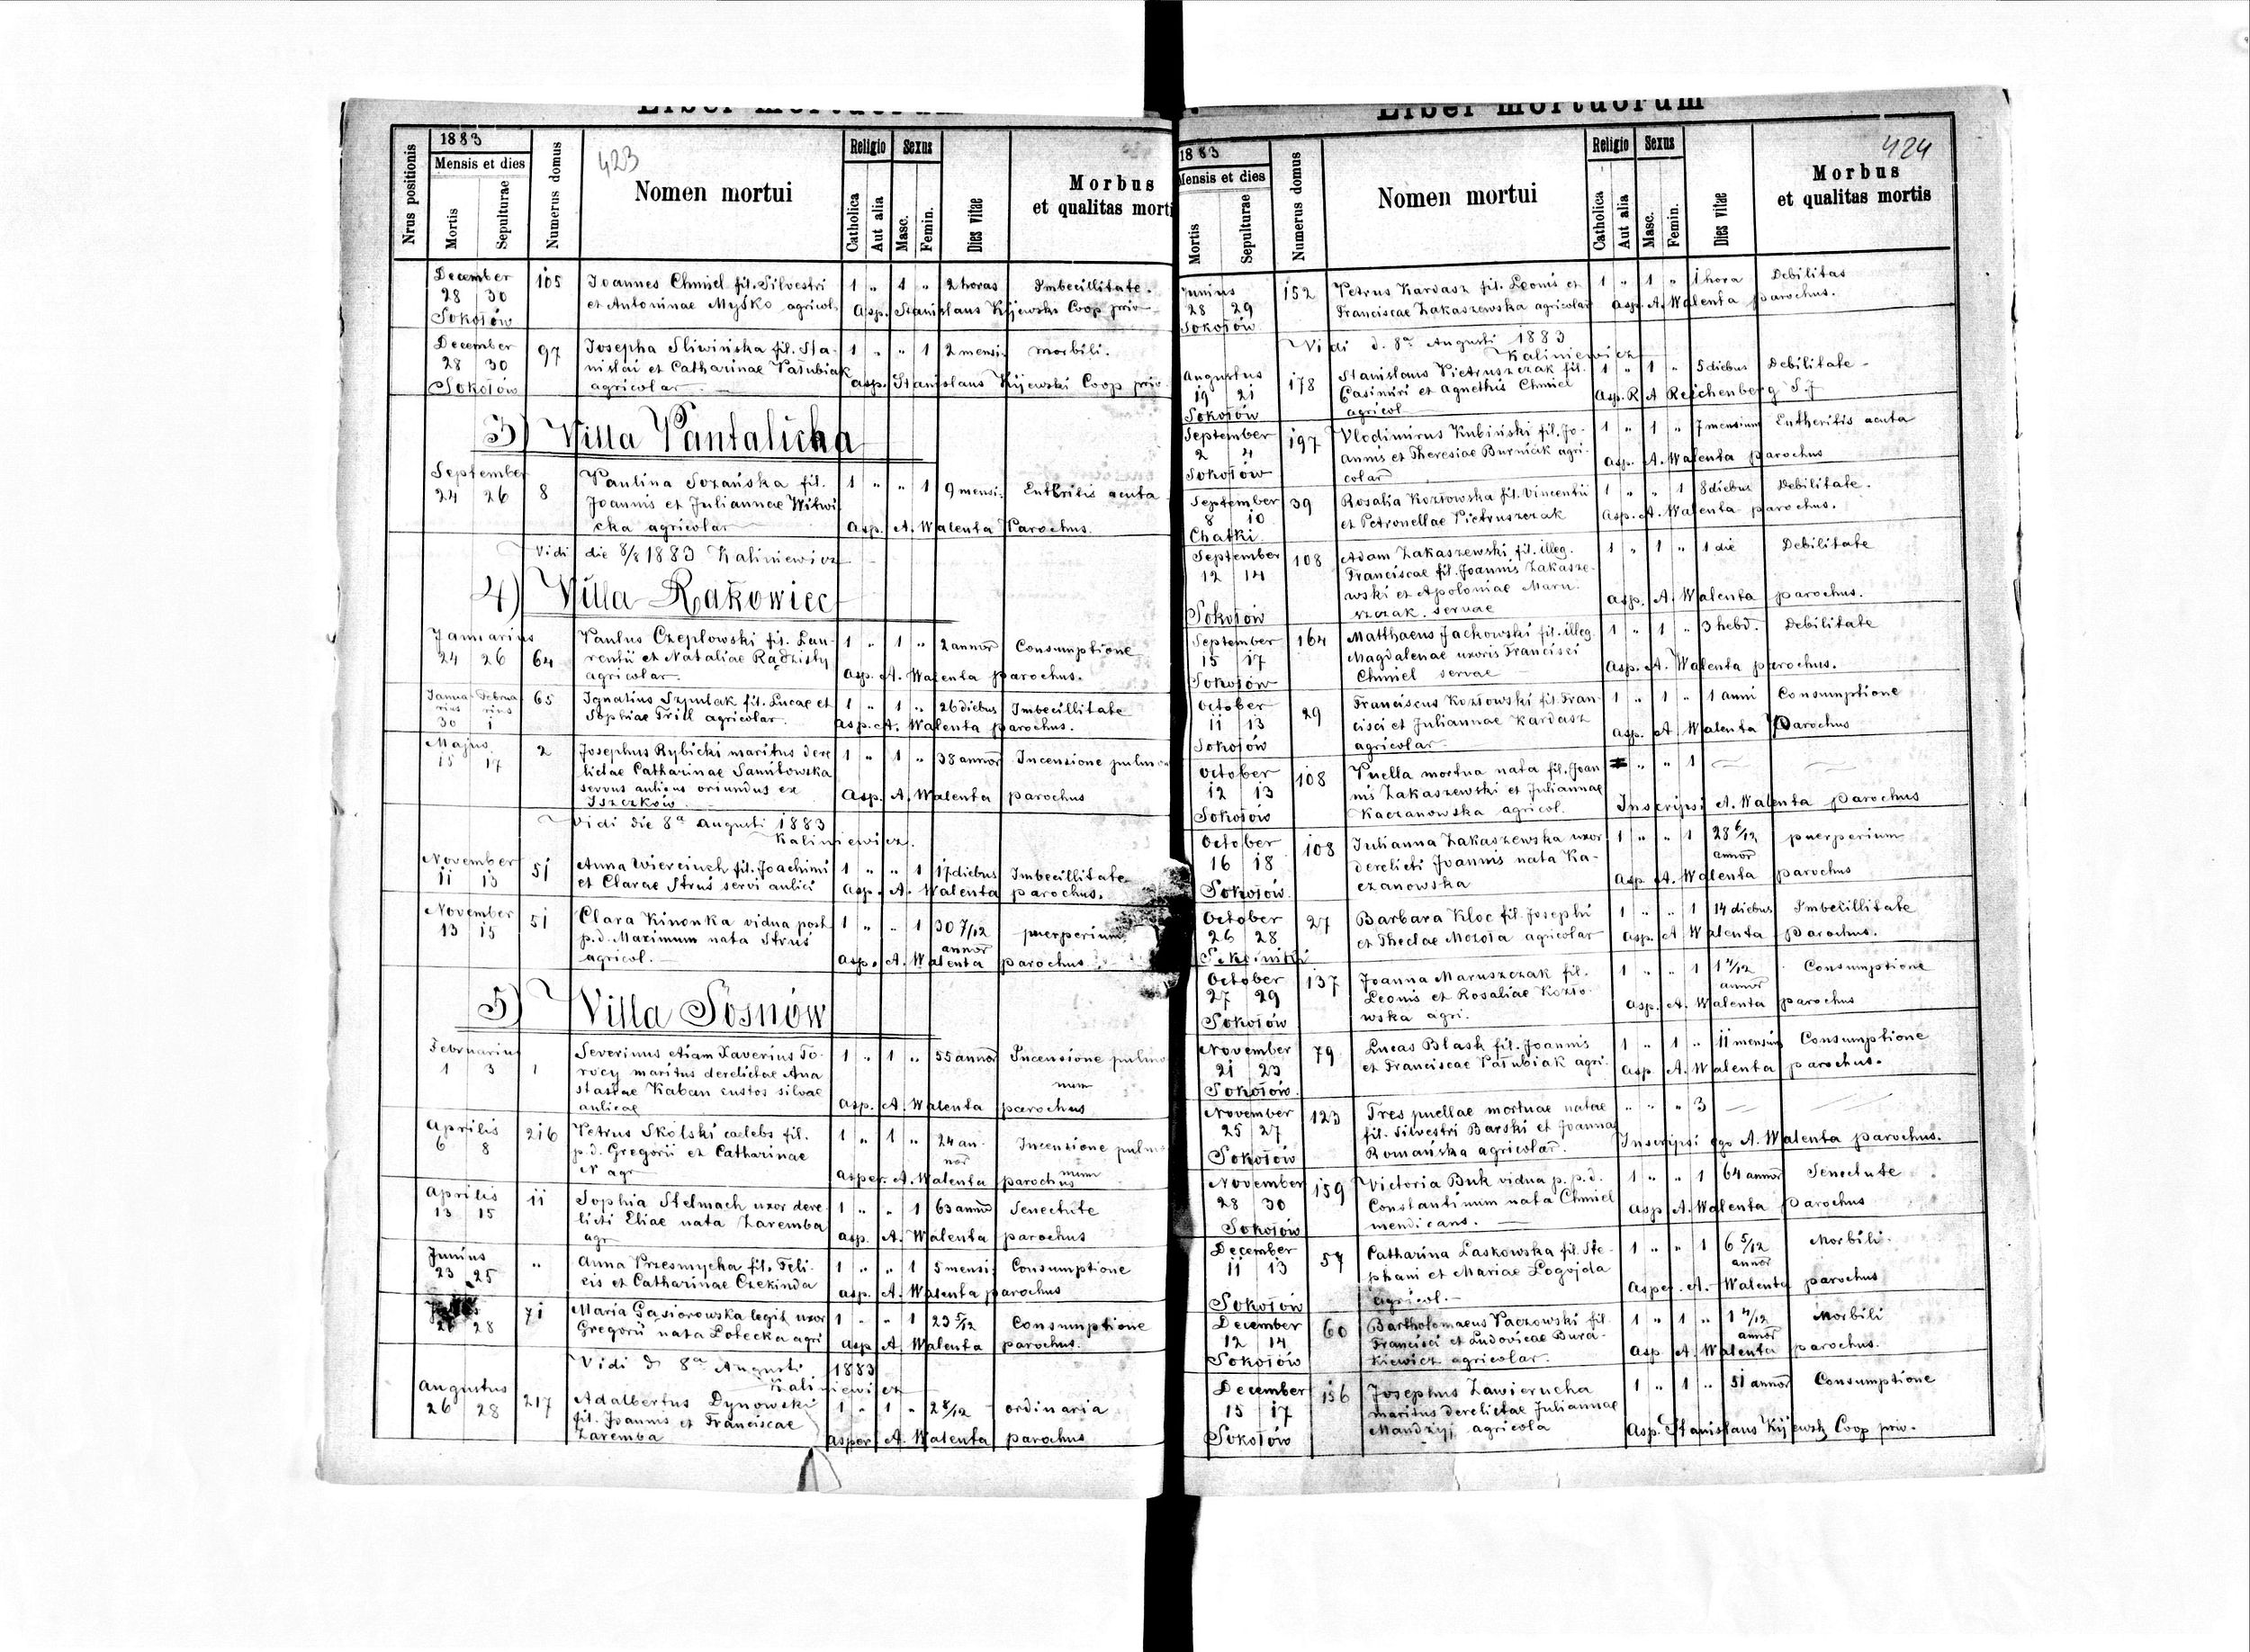 Liber mortuorum
423
1883
Nrus positionis
Mensis et dies
Mortis
Sepulturae
Numerus domus
Nomen mortui
Religio
Catholica
Aut alia
Sexus
Masc.
Femin.
Dies vitae
Morbus
et qualitas morti
December 105 Joannes Chmiel fil. Silvestri 1 " 1 " 2 horas Imbecillitate.
28 30 et Antoninae Myśko agricol.
Sokołów Asp. Stanislaus Kijewski Coop priv
December 97 Josepha Sliwińska fil. Sta- 1 " " 1 2 mensi. morbili.
28 30 nislai et Catharinae Pałubiak
Sokołów agricolar asp. Stanislaus Kijewski Coop priv
3) Villa Pantalicha
September 8 Paulina Sozańska fil. 1 " " 1 9 mensi. Entheritis acuta
24 26 Joannis et Juliannae Witwi
cka agricolar Asp. A. Walenta Parochus.
Vidi die 8/8 1883 Kaliniewicz
4) Villa Rakowiec
Januarius 64 Paulus Czeplowski fil. Lau- 1 " 1 " 2 annor Consumptione
24 26 rentii et Nataliae Rądzisty
agricolar. Asp. A. Walenta parochus.
Janua- Februa 65 Ignatius Szymlak fil. Lucae et 1 " 1 " 26 diebus Imbecillitate
rius rius Sophiae Trill agricolar.
30 1 Asp. A. Walenta parochus.
Majus 2 Josephus Rybicki maritus dere 1 " 1 " 38 annor Incensione pulmo
15 17 lictae Catharinae Samitowska
servus aulicus oriundus ex Asp. A. Walenta parochus
Iszczków
Vidi die 8a augusti 1883
Kaliniewicz.
November 51 Anna Wierciuch fil. Joachimi 1 " " 1 17 diebus Imbecillitate
11 13 et Clarae Struś servi aulici Asp. A. Walenta parochus.
November 51 Clara Kinonka vidua post 1 " " 1 30 7/12 puerperium
13 15 p. d. Maximum nata Struś annor
agricol. Asp. A. Walenta parochus
5) Villa Sosnów
Februarius 1 Severinus etiam Xaverius To- 1 " 1 " 55 annor Incensione pulmo
1 3 rocy maritus derelictae Ana num
stasiae Kaban custos silvae
aulicae Asp. A. Walenta parochus
Aprilis 216 Petrus Skolski caelebs fil. 1 " 1 " 24 an- Incensione pulmo
6 8 p. d. Gregorii et Catharinae nor num
N agr Asper. A. Walenta parochus
Aprilis 11 Sophia Stelmach uxor dere 1 " " 1 63 anno Senectute
13 15 licti Eliae nata Zaremba
agr Asp. A. Walenta parochus
Junius " Anna Przesmycka fil. Feli- 1 " " 1 5 mensi. Consumptione
23 25 cis et Catharinae Czekinda Asp. A. Walenta parochus
71 Maria Gąsiorowska legit. uxor 1 " " 1 23 5/12 Consumptione
28 Gregorii nata Potecka agri Asp A. Walenta parochus.
Vidi d 8a Augusti 1883
Kaliniewicz
Augustus 217 Adalbertus Dynowski 1 " 1 " 2 8/12 ordinaria
26 28 fil. Joannis et Franciscae
Zaremba asper A. Walenta parochus
Liber mortuorum
424
1883
Mensis et dies
Mortis
Sepulturae
Numerus domus
Nomen mortui
Religio
Catholica
Aut alia
Sexus
Masc.
Femin.
Dies vitae
Morbus
et qualitas mortis
Junius 152 Petrus Kardasz fil. Leonis et 1 " 1 " 1 hora Debilitas
28 29 Franciscae Zakaszewska agricolar Asp. A. Walenta parochus.
Sokołów
Vidi d. 8a Augusti 1883
Kaliniewicz
Augustus 178 Stanislaus Pietruszczak fil. 1 " 1 " 5 diebus Debilitate
19 21 Casimiri et Agnethis Chmiel Asp. R A Reichenberg S. J
Sokołów agricol
September 197 Vlodimirus Kubiński fil. Jo- 1 " 1 " 7 mensium Entheritis acuta
2 4 annis et Theresiae Burniak agri- Asp. A. Walenta parochus
Sokołów colar
September 39 Rosalia Kozłowska fil. Vincentii 1 " " 1 8 diebus Debilitate.
8 10 et Petronellae Pietruszczak Asp. A. Walenta parochus.
Chatki
September 108 Adam Zakaszewski fil. illeg. 1 " 1 " 1 die Debilitate
12 14 Franciscae fil. Joannis Zakasze-
wski et Apoloniae Maru- Asp. A. Walenta parochus.
Sokołów szczak. servae
September 164 Matthaeus Jackowski fil. illeg. 1 " 1 " 3 hebd. Debilitate
15 17 Magdalenae uxoris Francisci
Sokołów Chmiel servae Asp. A. Walenta parochus.
October 29 Franciscus Kozłowski fil. Fran- 1 " 1 " 1 anni Consumptione
11 13 cisci et Juliannae Kardasz
Sokołów agricolar Asp. A. Walenta Parochus
October 108 Puella mortua nata fil. Joan " " 1
12 13 nis Zakaszewski et Juliannae
Sokołów Kaczanowska agricol. Inscripsi A. Walenta parochus
October 108 Julianna Zakaszewska uxor 1 " " 1 28 6/12 puerperium
16 18 derelicti Joannis nata Ka- annor
Sokołów. czanowska Asp A. Walenta parochus
October 27 Barbara Kloc fil. Josephi 1 " " 1 14 diebus Imbecillitate
26 28 et Theclae Mozoła agricolar Asp. A Walenta parochus.
October 137 Joanna Maruszczak fil. 1 " " 1 1 Consumptione
27 29 Leonis et Rosaliae Kozło- annor
Sokołów wska agri. Asp. A. Walenta parochus
November 79 Lucas Blask fil. Joannis 1 " 1 " 11 mensium Consumptione
21 23 et Franciscae Pałubiak agri. Asp. A. Walenta parochus.
Sokołów.
November 123 Tres puellae mortuae natae " " " 3
25 27 fil. Silvestri Barski et Joanna
Sokołów Romańska agricolar. Inscripsi ego A. Walenta parochus.
November 159 Victoria Buk vidua p. p. d. 1 " " 1 64 annor Senectute
28 30 Constantinum nata Chmiel
Sokołów mendicans. Asp A. Walenta parochus
December 57 Catharina Laskowska fil. Ste- 1 " " 1 6 5/12 Morbili.
11 13 phani et Mariae Pogojda annor
Sokołów agricol. Asper. A. Walenta parochus
December 60 Bartholomaeus Paczowski fil. 1 " 1 " 1 Morbili
12 14 Francisci et Ludovicae Bura- annor
Sokołów kiewicz agricolar. Asp. A. Walenta parochus.
December 156 Josephus Zawierucha 1 " 1 " 51 annor Consumptione
15 17 maritus derelictae Juliannae
Sokołów Mandzyj agricola Asp. Stanislaus Kijewski Coop priv.